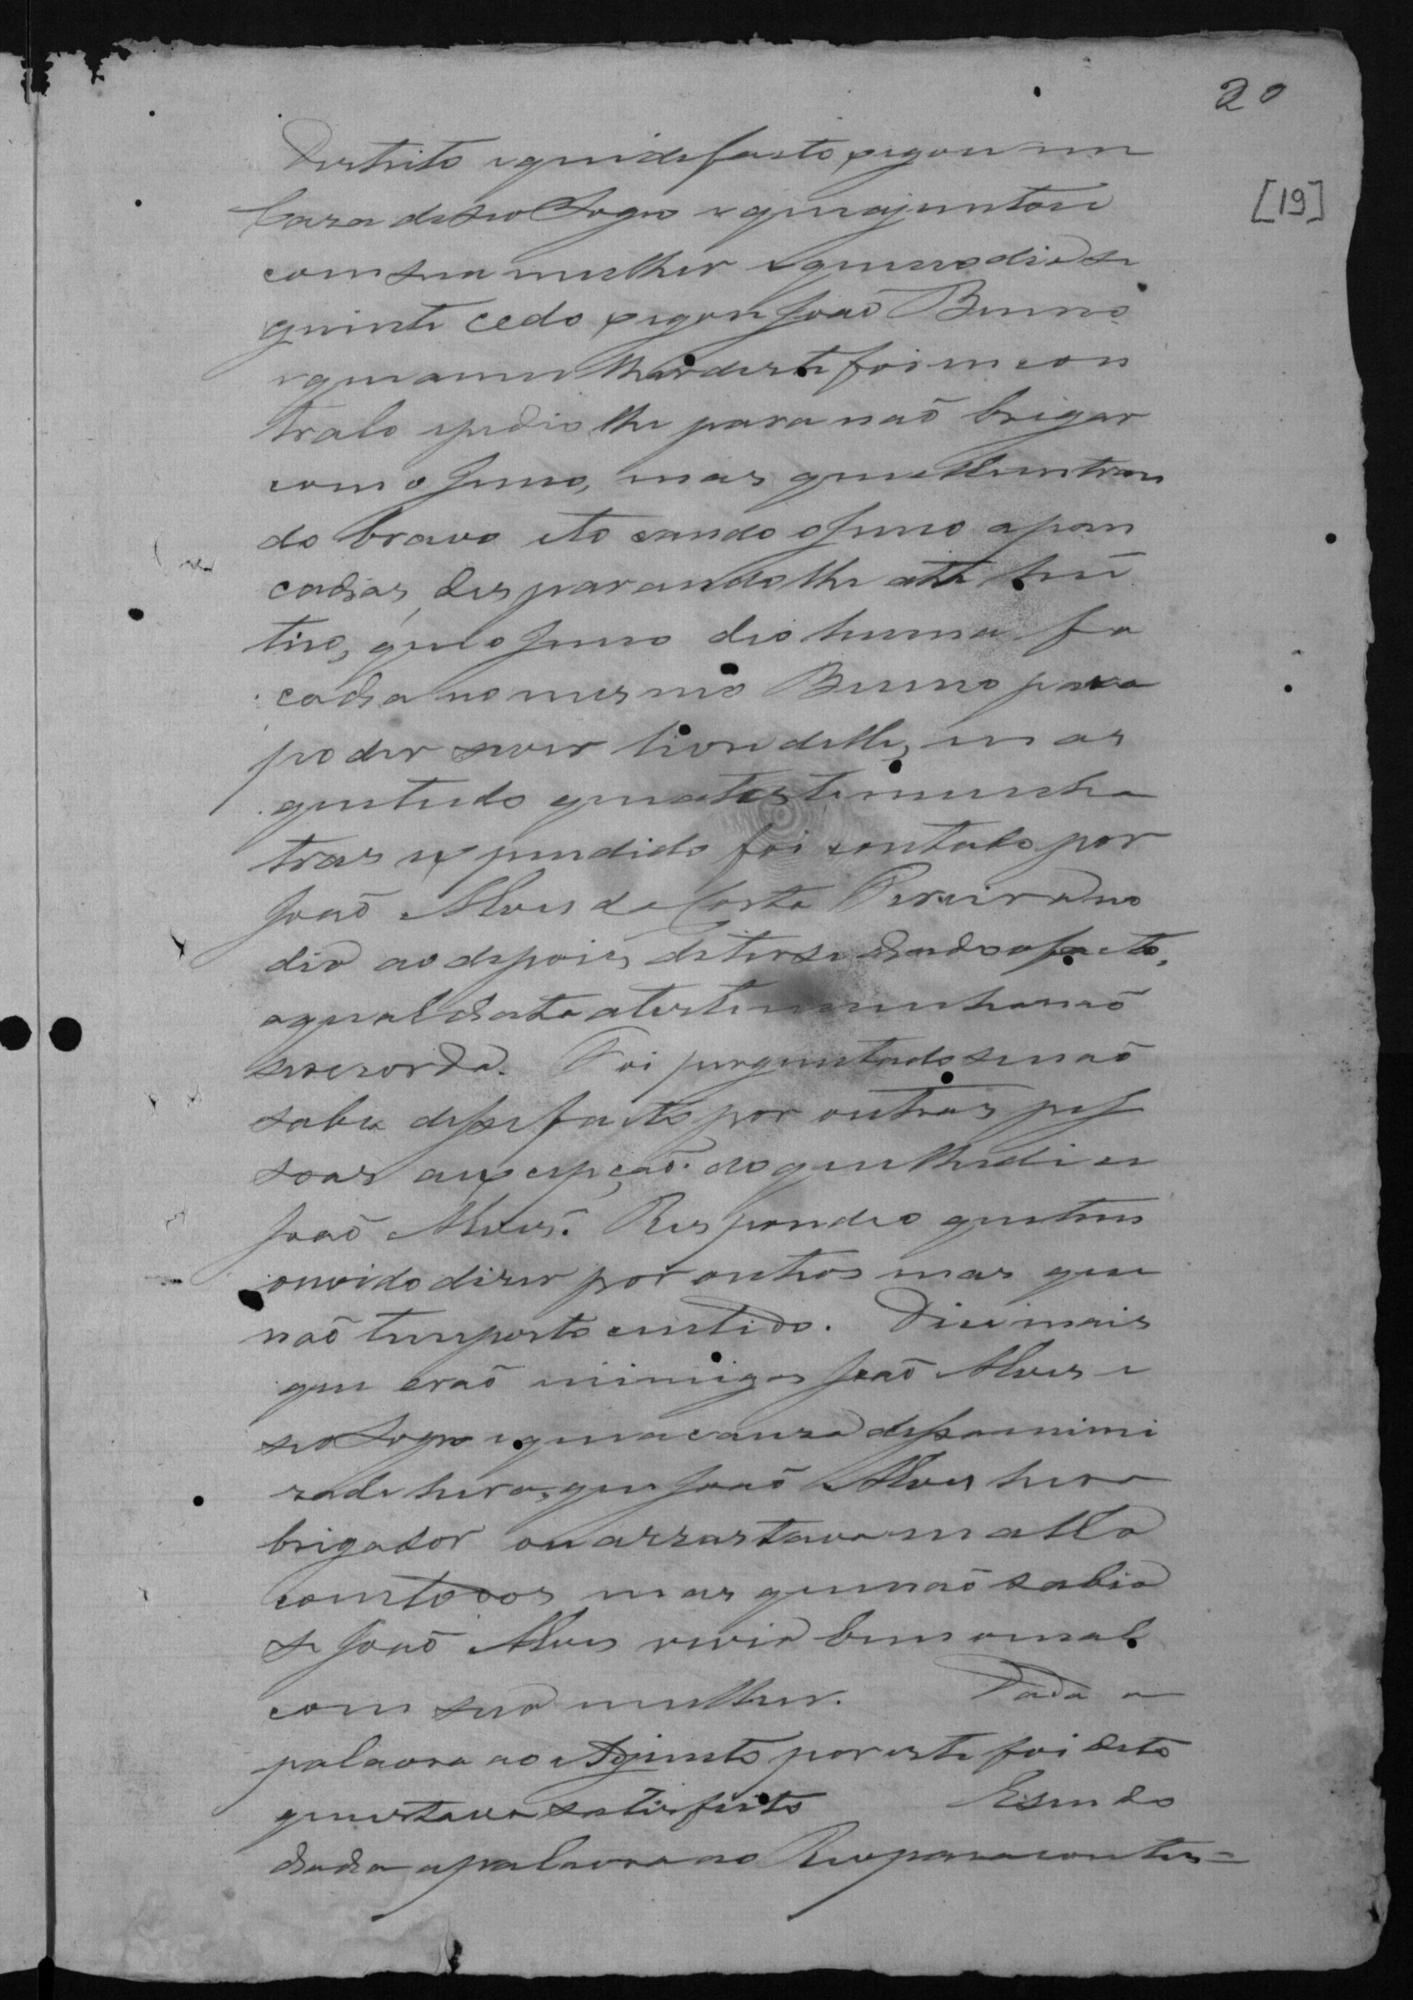 20
[19]
Destrito e que de facto xegou em
Caza de seo Sogro e que ajuntou
com sua mulher e que no dia se
guinte cedo xegou João Bueno
e que a mulher deste foi incon
tralo e pedio lhe para não brigar
com o Juno, mas que elle entran
do bravo e tocando o Juno a pan
cadas, desparando lhe athe hũ
tiro, que o Juno dio huma fa
cada no mesmo Bueno para
poder sever livre delle, mas
que tudo que a testimunha
tras expendido foi contado por
João Alves da Costa Pereira no
dia ao depois de terse dado o facto,
a qual data a testimunha não
se recorda. Foi perguntado se não
sabe desse facto por outras pes
soas a excepção do que lhe dice
João Alves. Respondeo que tem
ouvido dizer por outros mas que
não tem posto centido. Dice mais
que erão inimigos João Alves e
seo Sogro e que a cauza dessa inimi
zade hera, que João Alves hera
brigador ou arrastava malla
com todos mas que não sabia
se João Alves vivia bem ou mal
com sua mulher. Dada a
palavra ao Ajunto por este foi dito
que estava satisfeito E sendo
dada a palavra ao Reo para contes=